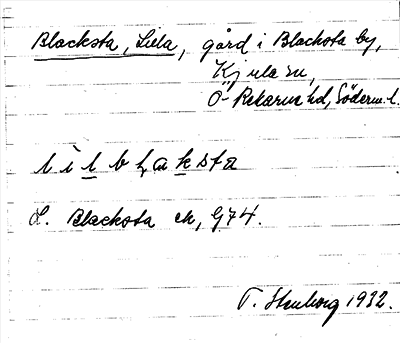 Blacksta, Lilla, gård i Blacksta by,
Kjula sn,
Ö-Rekarne hd, Söderm. l.
L. Blacksta ek, G74.
T. 1932.